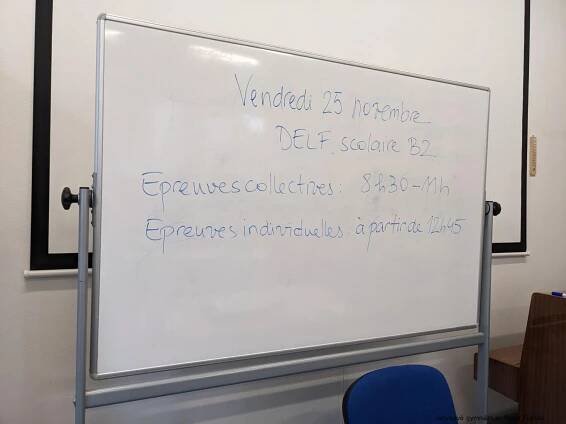 Vendredi 25 novembre
DELF scolaire B2
Epreuves collectives: 8h30-11h
Epreuves individuelles à partir de 12h45